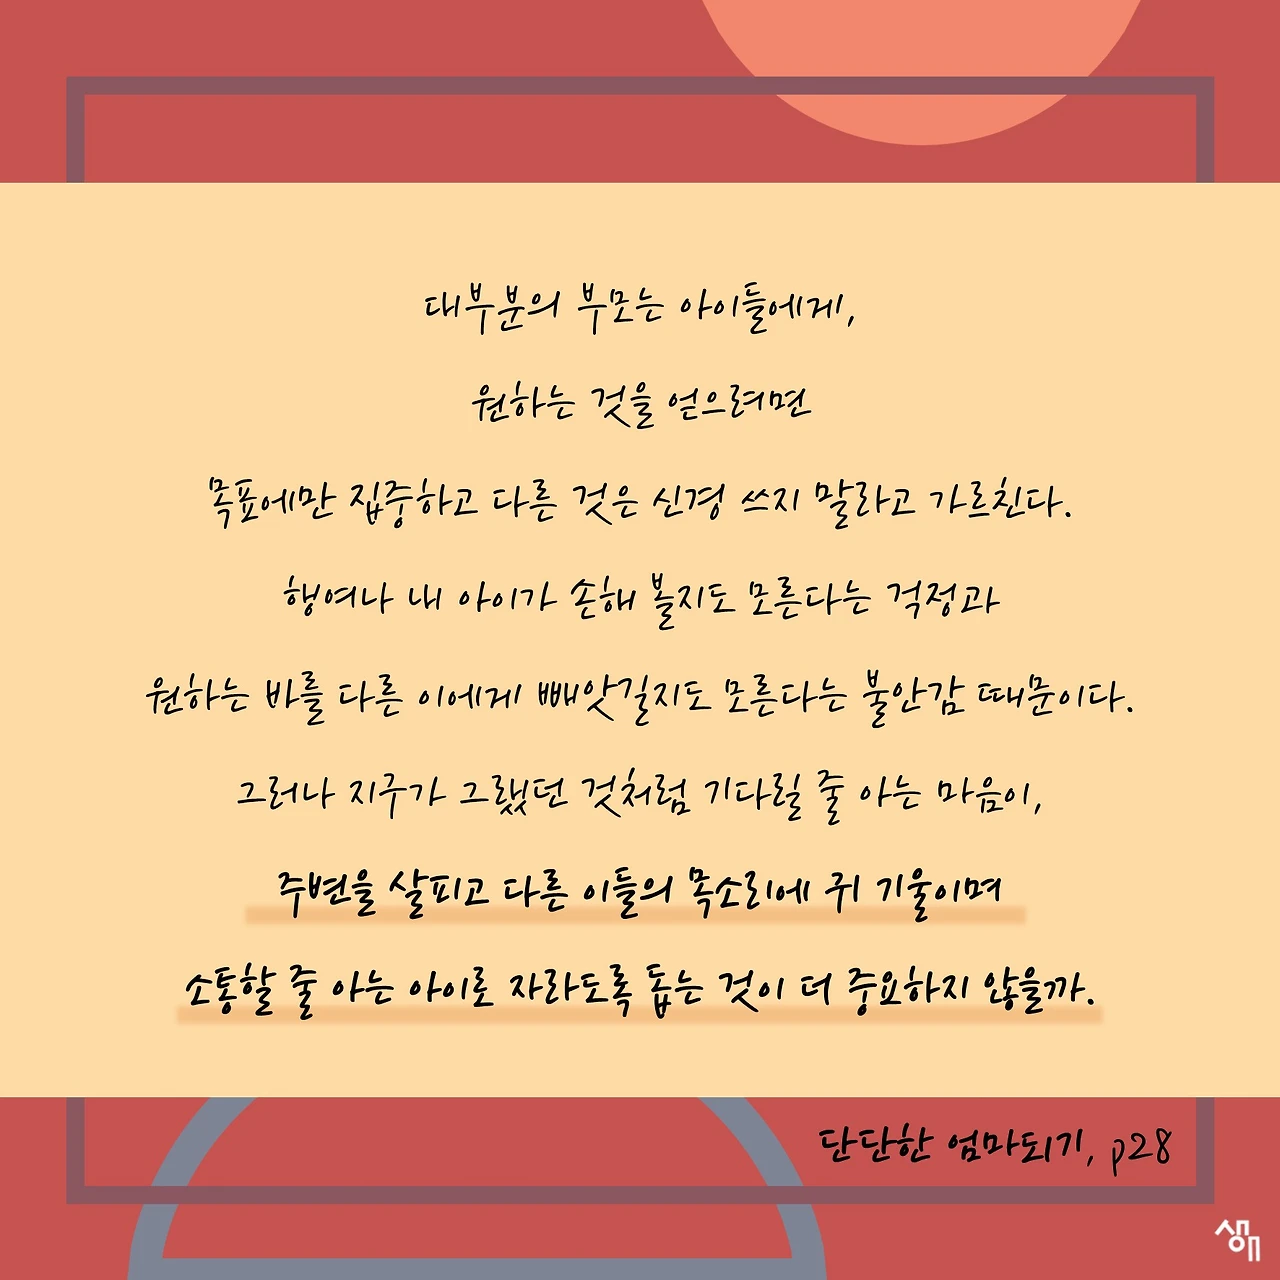 대부분의 부모는 아이들에게,
원하는 것을 얻으려면
목표에만 집중하고 다른 것은 신경 쓰지 말라고 가르친다.
행여나 내 아이가 손해 볼지도 모른다는 걱정과
원하는 바를 다른 이에게 빼앗길지도 모른다는 불안감 때문이다.
그러나 지구가 그랬던 것처럼 기다릴 줄 아는 마음이,
주변을 살피고 다른 이들의 목소리에 귀 기울이며
소통할 줄 아는 아이로 자라도록 돕는 것이 더 중요하지 않을까.
단단한 엄마되기, p28